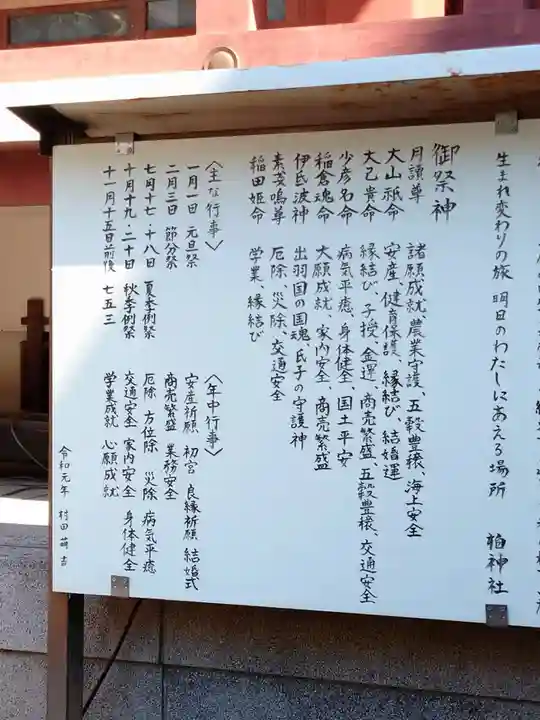 生まれ変わりの旅 明日のわたしにあえる場所 椙神社
御祭神
月讀尊 諸願成就、農業守護、五穀豊穣、海上安全
大山祇命 安産、健育保護、縁結び、結婚運
大己貴命 縁結び、子授、金運、商売繁盛、五穀豊穣、交通安全
少彦名命 病気平癒、身体健全、国土平安
稲倉魂命 大願成就、家内安全、商売繁盛
伊氐波神 出羽国の国魂、氏子の守護神
素戔嗚尊 厄除、災除、交通安全
稲田姫命 学業、縁結び
〈主な行事〉
一月一日 元旦祭
二月三日 節分祭
七月十七・十八日 夏季例祭
十月十九・二十日 秋季例祭
十一月十五日前後 七五三
〈年中行事〉
安産祈願 初宮 良縁祈願 結婚式
商売繁盛 業務安全
厄除 方位除 災除 病気平癒
交通安全 家内安全 身体健全
学業成就 心願成就
令和元年 村田 萌吉